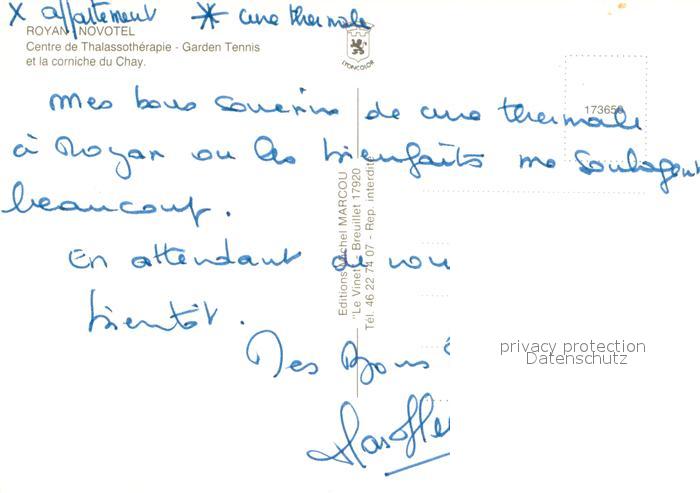 x appartement * cure thermale
ROYAN NOVOTEL
Centre de Thalassothérapie - Garden Tennis
et la corniche du Chay.
LYONCOLOR
173658
Mes bons souvenirs de cure thermale
à Royan ou les bienfaits me soulagent
beaucoup.
En attendant de vou
bientôt.
Mes Bons
Editions Michel MARCOU
"Le Vinet" - Breuillet 17920
Tél. 46 22 74 07 - Rep. interdite
privacy protection
Datenschutz